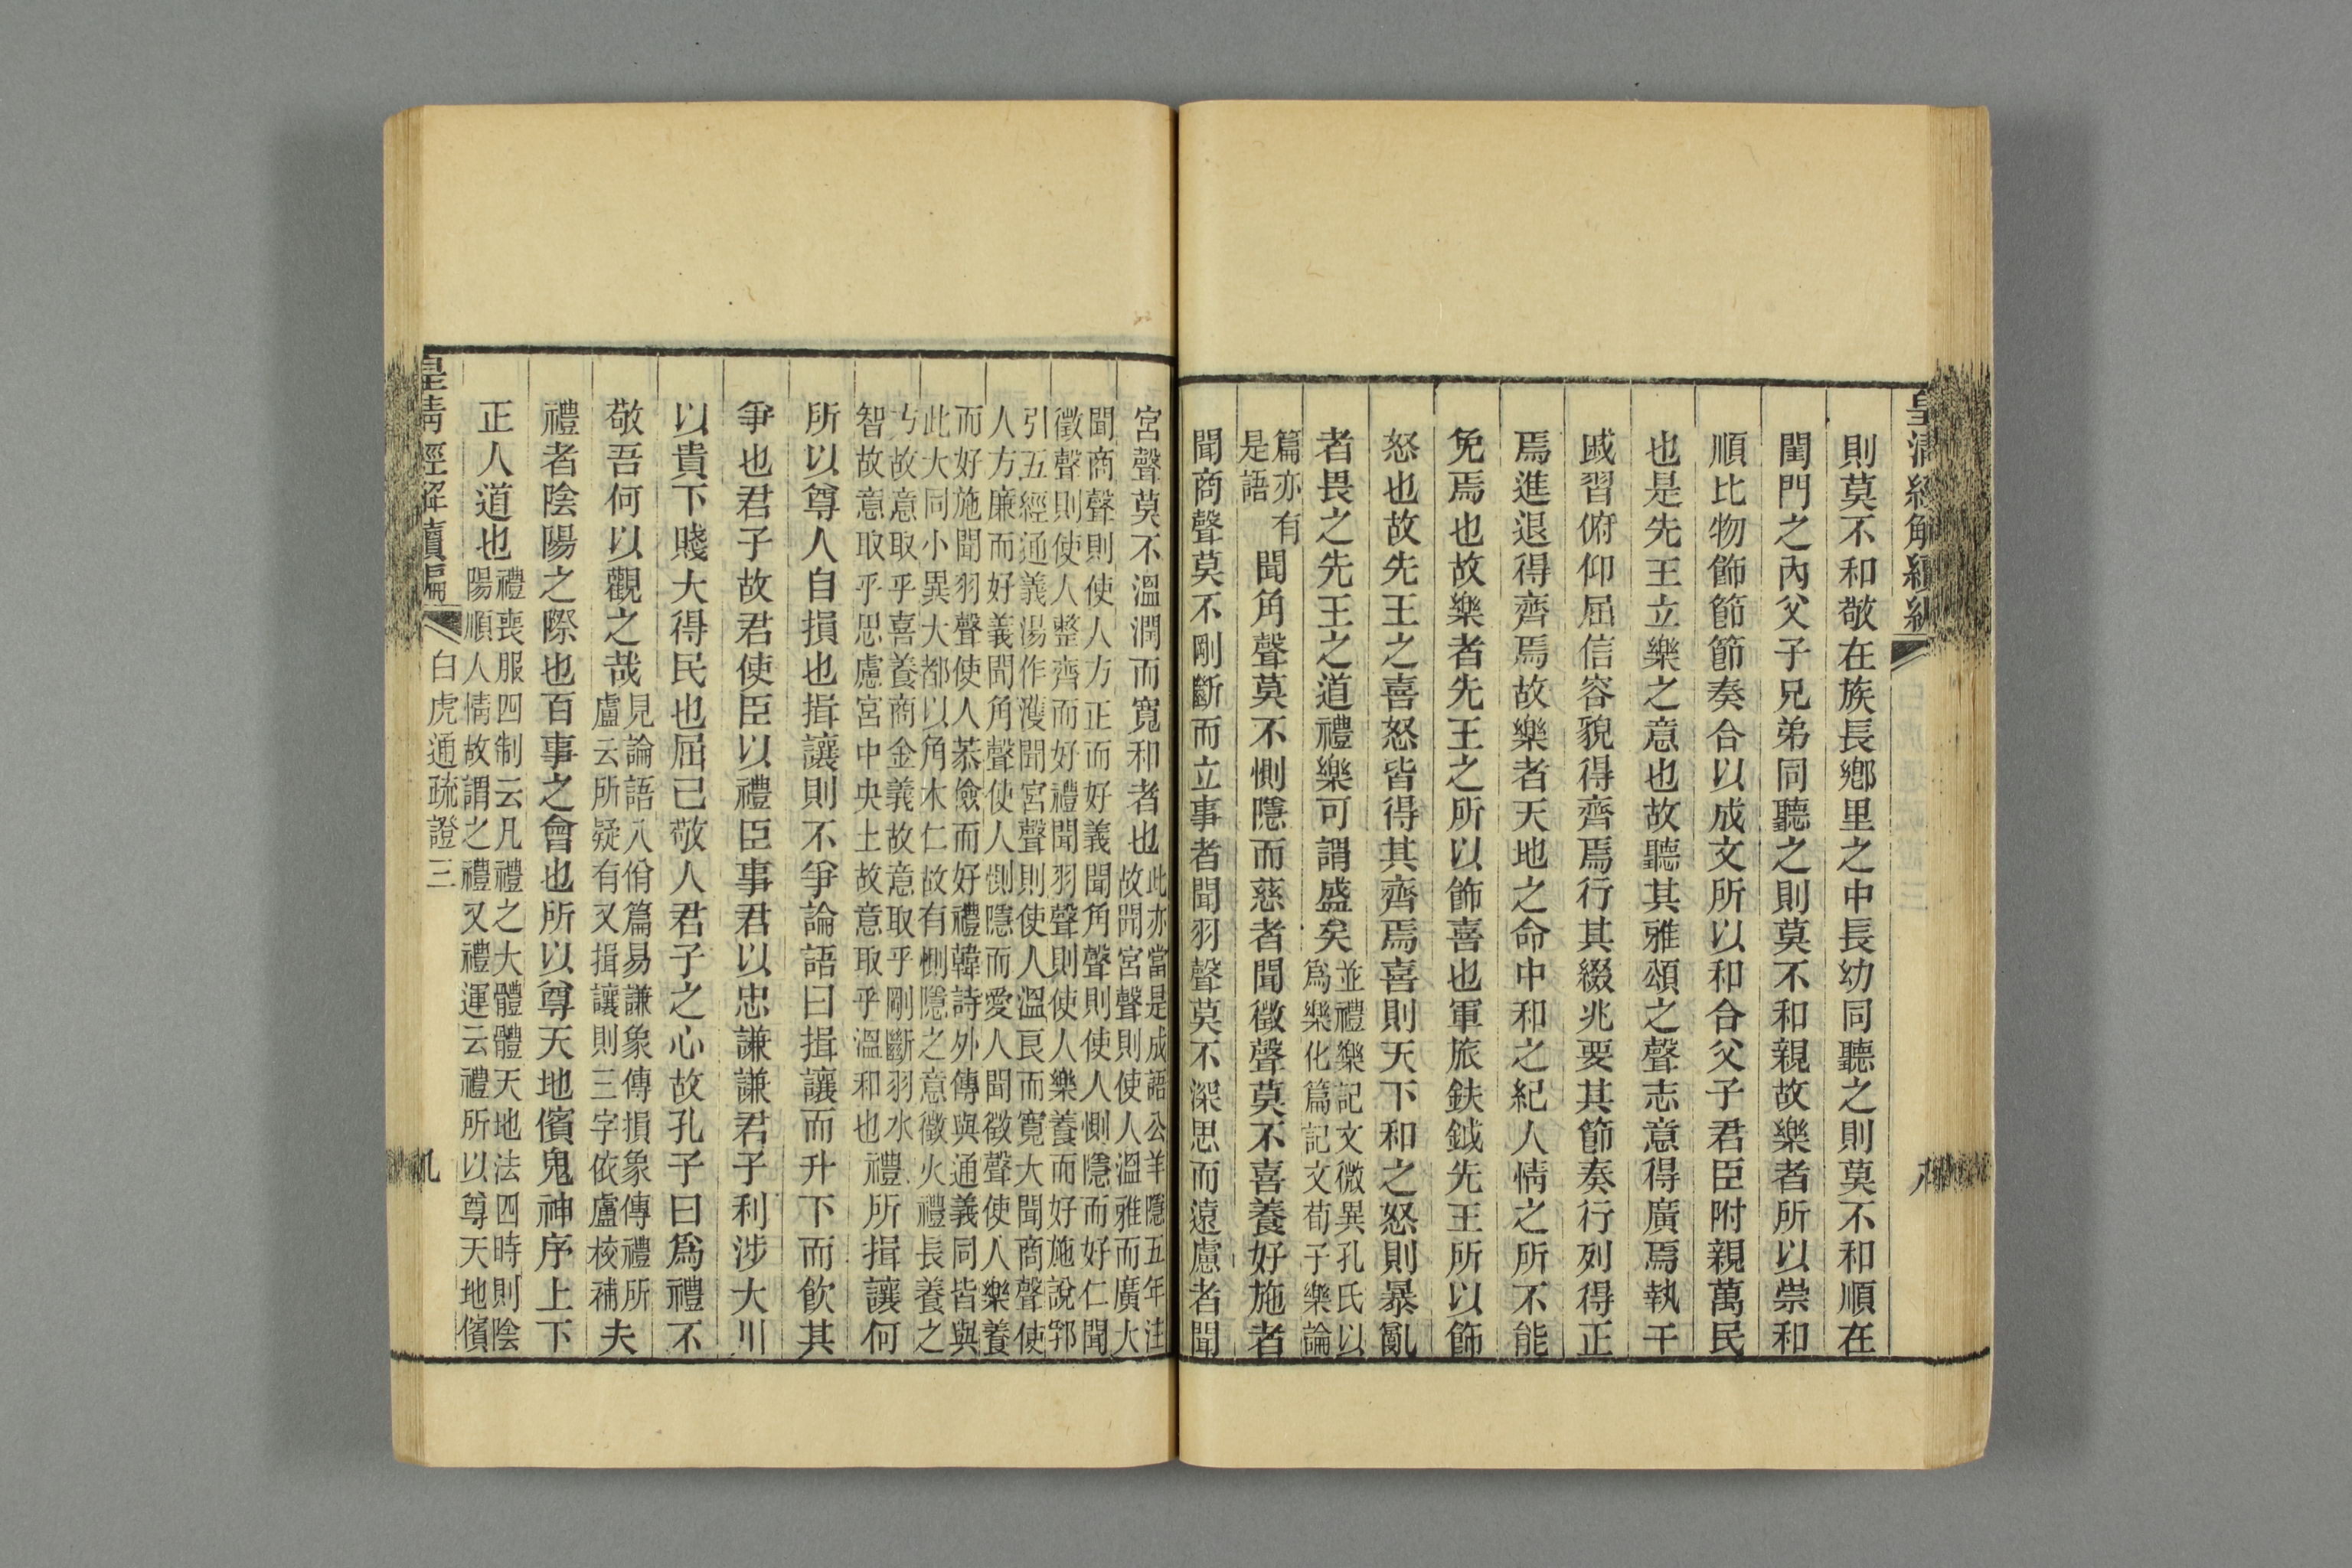 皇清經解續編
八
則莫不和敬在族長鄕里之中長幼同聽之則莫不和順在
閨門之內父子兄弟同聽之則莫不和親故樂者所以崇和
順比物飾節節奏合以成文所以和合父子君臣附親萬民
也是先王立樂之意也故聽其雅頌之聲志意得廣焉執干
戚習俯仰屈信容貌得齊焉行其綴兆要其節奏行列得正
焉進退得齊焉故樂者天地之命中和之紀人情之所不能
免焉也故樂者先王之所以飾喜也軍旅鈇鉞先王所以飾
怒也故先王之喜怒皆得其齊焉喜則天下和之怒則暴亂
者畏之先王之道禮樂可謂盛矣
並禮樂記文微異孔氏以
爲樂化篇記文荀子樂論
篇亦有
是語
聞角聲莫不惻隱而慈者聞徵聲莫不喜養好施者
聞商聲莫不剛斷而立事者聞羽聲莫不深思而遠慮者聞
宮聲莫不溫潤而寬和者也
此亦當是成語公羊隱五年注
故聞宮聲則使人溫雅而廣大
聞商聲則使人方正而好義聞角聲則使人惻隱而好仁聞
徵聲則使人整齊而好禮聞羽聲則使人樂養而好施說郛
引五經通義湯作濩聞宮聲則使人溫良而寬大聞商聲使
人方廉而好義聞角聲使人惻隱而愛人聞徵聲使人樂養
而好施聞羽聲使人恭儉而好禮韓詩外傳與通義同皆與
此大同小異大都以角木仁故有惻隱之意徵火禮長養之
方故意取乎喜養商金義故意取乎剛斷羽水
智故意取乎思慮宮中央土故意取乎溫和也
禮所揖讓何
所以尊人自損也揖讓則不爭論語曰揖讓而升下而飮其
爭也君子故君使臣以禮臣事君以忠謙謙君子利涉大川
以貴下賤大得民也屈己敬人君子之心故孔子曰爲禮不
敬吾何以觀之哉
見論語八佾篇易謙象傳損象傳禮所
盧云所疑有又揖讓則三字依盧校補
夫
禮者陰陽之際也百事之會也所以尊天地儐鬼神序上下
正人道也
禮喪服四制云凡禮之大體體天地法四時則陰
陽順人情故謂之禮又禮運云禮所以尊天地儐
皇清經解續編
白虎通疏證三
九